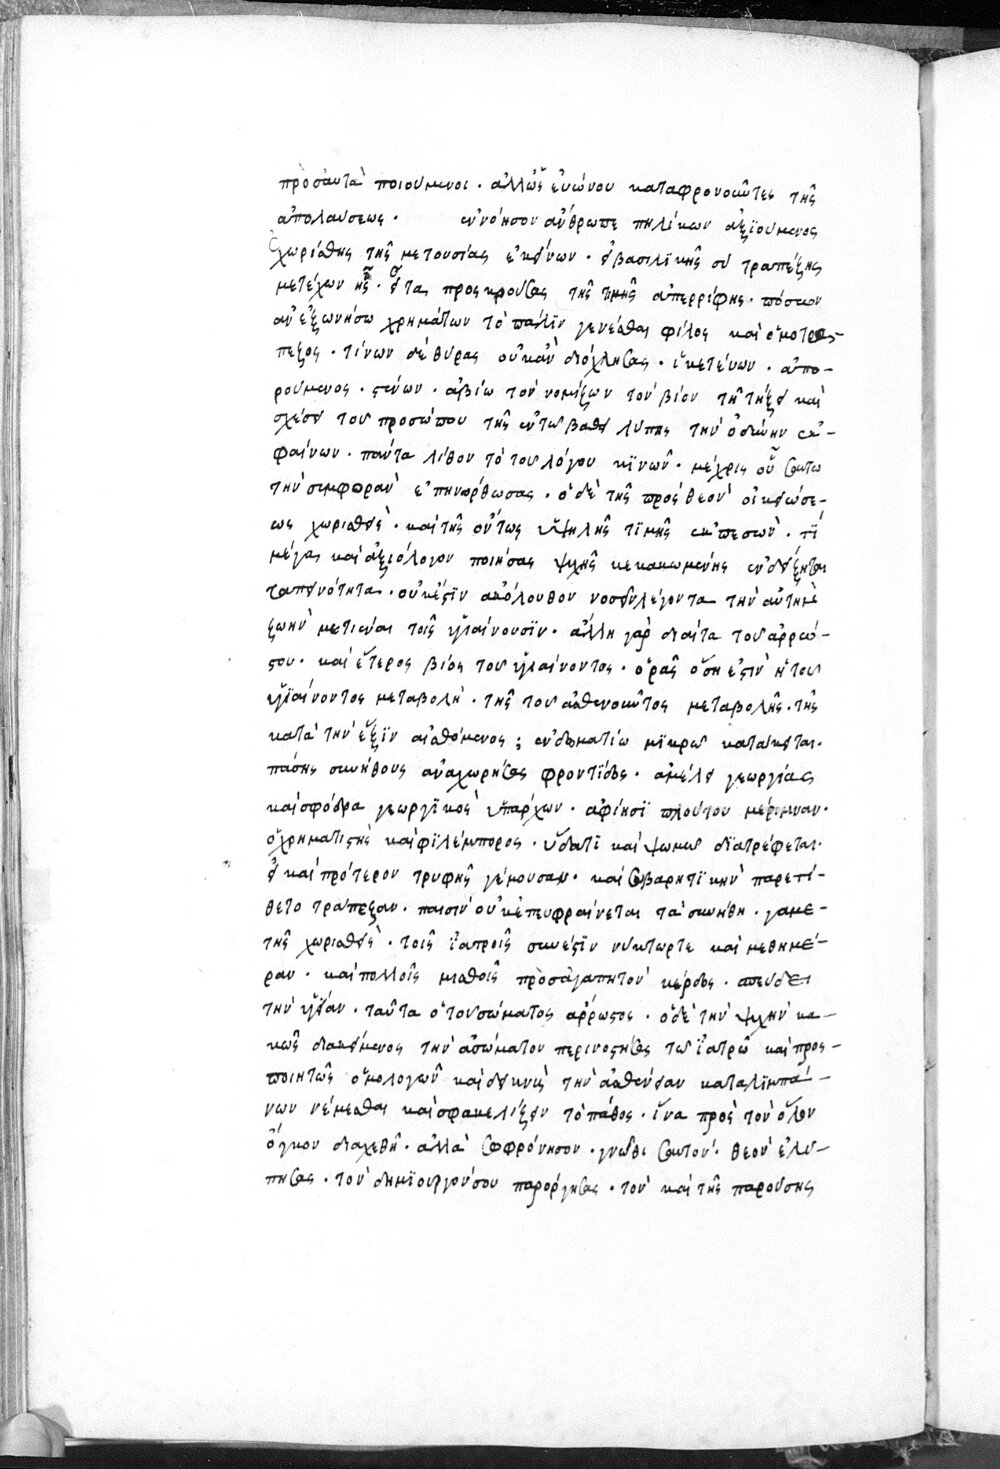 πρὸσαυτὰ ποιούμενοι · ἀλλῶς εὐώνου καταφρονοῦντες τῆς
ἀπολαύσεως · ἐννόησον ἄνθρωπε πηλίκων ἀξιούμενος
ἐχωρίσθης τῆς μετουσίας ἐκείνων · εἰ βασιλικῆς σὺ τραπέζης
μετέχων ἦς · εἶτα προσκρούσας τῆς τιμῆς ἀπερρίφης · πόσων
ἂν ἐξωνήσω χρημάτων τὸ πάλιν γενέσθαι φίλος καὶ ὁμοτρά-
πεζος · τίνων δὲ θύρας οὐκ ἂν διόχλησας · ἱκετεύων · ἀπο-
ρούμενος · στένων · ἀβίω τὸν νομίζων τὸν βίον τῆ τήξει καὶ
σχέσει τοῦ προσώπου τῆς ἐν τῶ βάθει λύπης τὴν ὀδύνην ἐκ-
φαίνων · πάντα λίθον τὸ τοῦ λόγου κινῶν · μέχρις οὗ σαυτῶ
τὴν συμφορὰν ἐπηνώρθωσας · ὁ δὲ τῆς πρὸς θεὸν οἰκειώσε-
ως χωρισθεὶς · καὶ τῆς οὕτως ὑψηλῆς τιμῆς ἐκπεσὼν · τί
μέγα καὶ ἀξιόλογον ποιήσας ψυχῆς κεκακωμένης ἐνδείξηται
ταπεινότητα · οὐκ ἔστιν ἀκόλουθον νοσεῖν λέγοντα τὴν αὐτὴν
ζωὴν μετιέναι τοῖς ὑγιαίνουσιν · ἄλλη γὰρ δίαιτα τοῦ ἀρρώ-
στου · καὶ ἕτερος βίος τοῦ ὑγιαίνοντος · ὁρᾶς ὅση ἐστὶν ἡ τοῦ
ὑγιαίνοντος μεταβολὴ · τῆς τοῦ ἀσθενοῦντος μεταβολῆς · τῆς
κατὰ τὴν ἕξιν αἰσθόμενος ; ἐν δωματίω μικρῶ κατάκειται ·
πάσης συνήθους ἀναχωρήσας φροντίδος · ἀμελεῖ γεωργίας
καὶ σφόδρα γεωργικὸς ὑπάρχων · ἀφίησι πλούτου μέριμναν ·
ὁ χρηματιστὴς καὶ φιλέμπορος · ὕδατι καὶ ψωμῶ διατρέφεται ·
εἰ καὶ πρότερον τρυφῆς γέμουσαν · καὶ συβαριτικὴν παρετί-
θετο τράπεζαν · παισὶν οὐκ ἐπευφραίνεται τὰ συνήθη · γαμε-
τῆς χωρισθεὶς · τοῖς ἰατροῖς σύνεστιν νύκτωρτε καὶ μεθημέ-
ραν · καὶ πολλοῖς μισθοῖς πρὸσἀγαπητὸν κέρδος · σπεύδει
τὴν ὑγείαν · ταῦτα ὁ τοῦ σώματος ἄρρωστος · ὁ δὲ τὴν ψυχὴν κα-
κῶς διακείμενος τὴν ἀσώματον περινοστήσας τῶ ἰατρῶ καὶ προσ-
ποιητῶς ὁμολογῶν καὶ δεικνὺς τὴν ἀσθένειαν καταλιμπά-
νων νέμεσθαι καὶ σφακελίζειν τὸ πάθος · ἵνα πρὸς τὸν ὅλον
ὄγκον διαχεθῆ · ἀλλὰ σωφρόνησον · γνῶθι σαυτὸν · θεὸν ἐλύ-
πησας · τὸν δημιουργόνσου παρόργησας · τὸν καὶ τῆς παρούσης